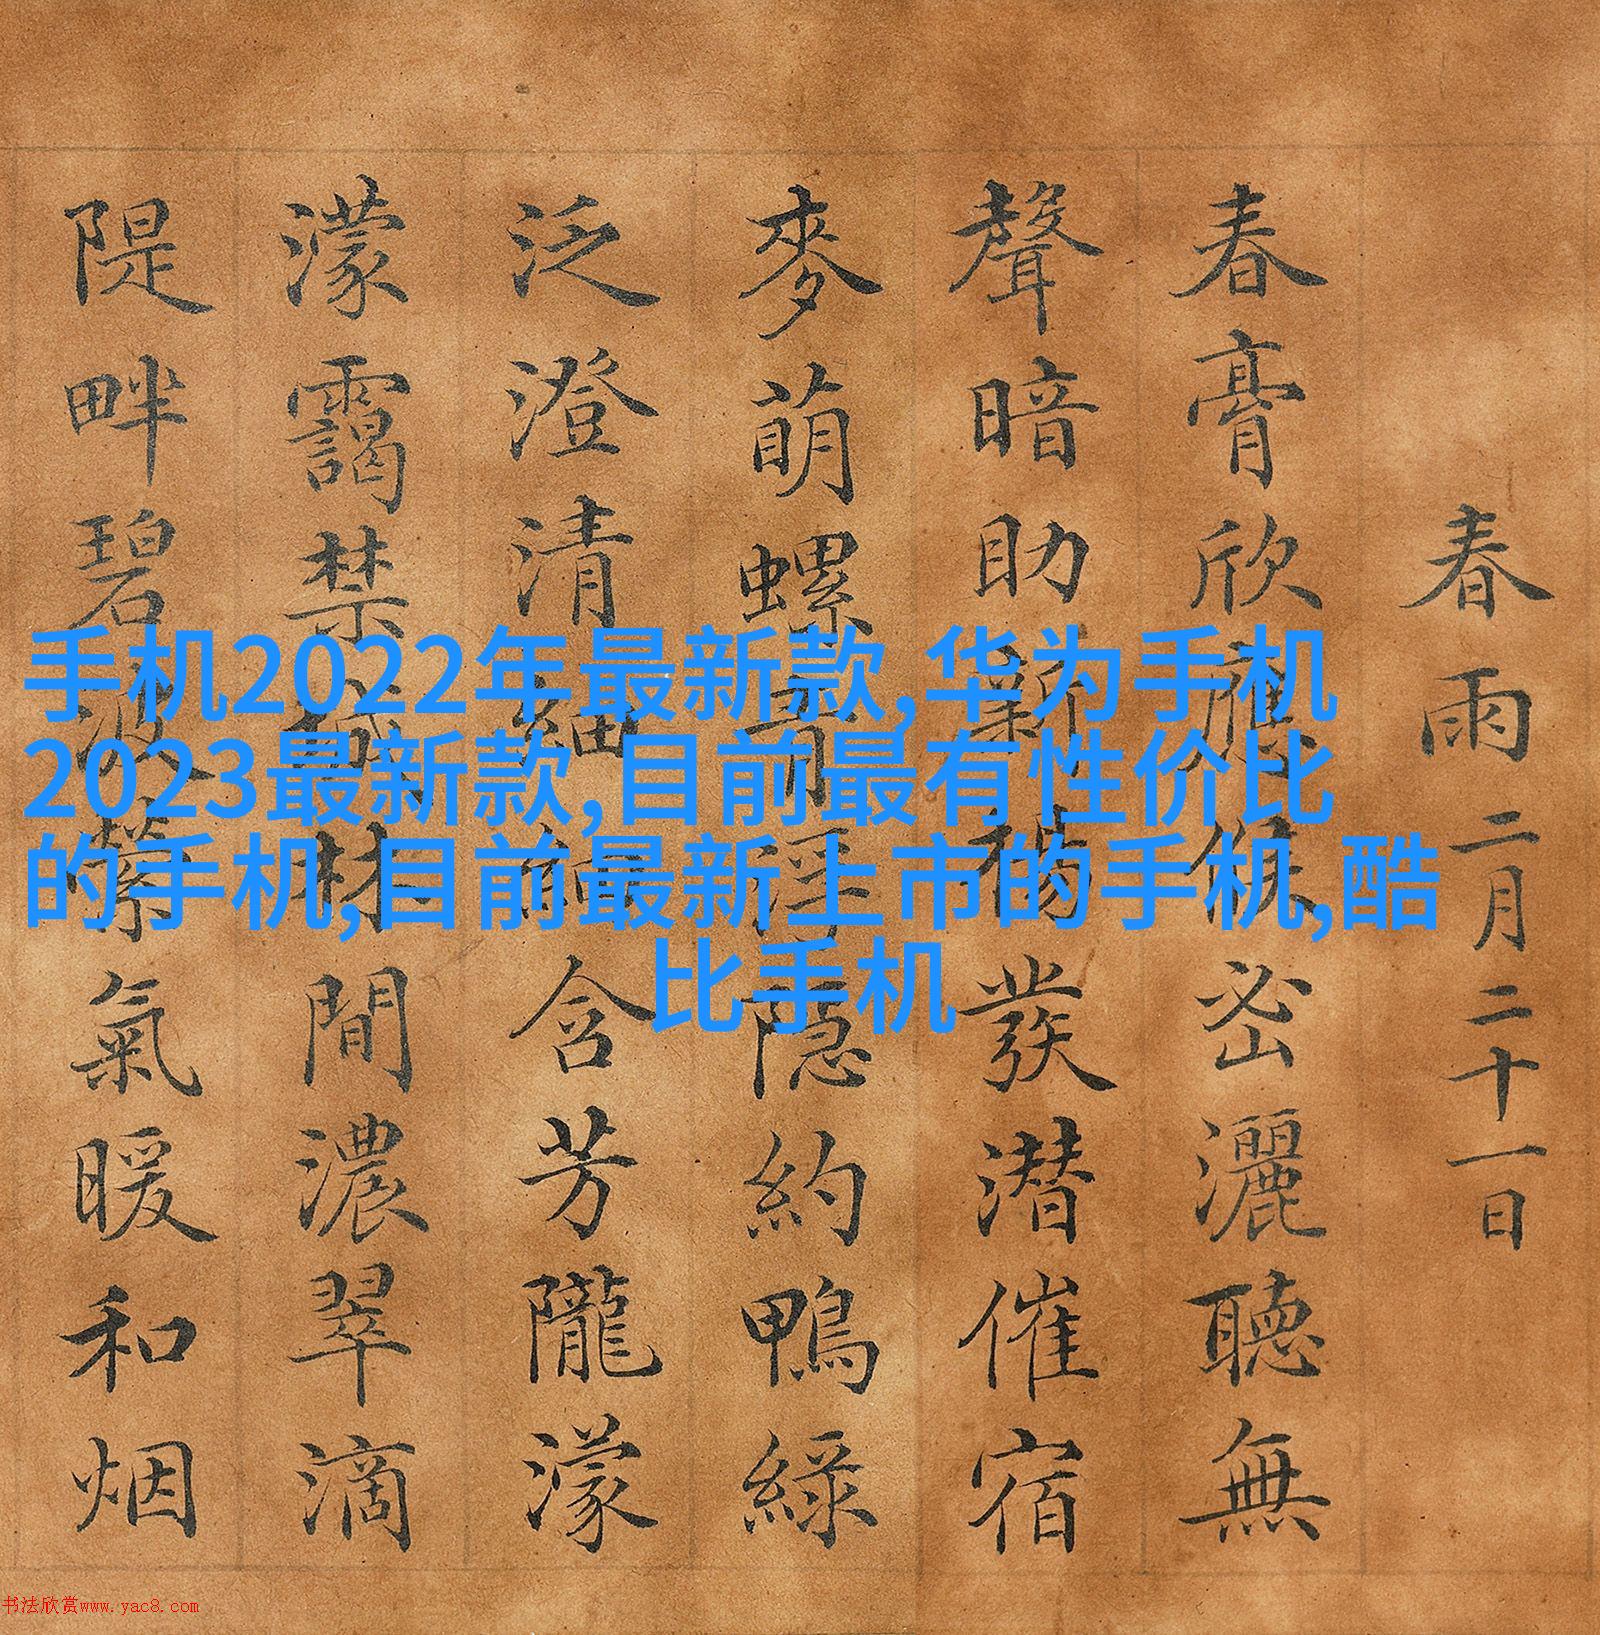 春雨 二月二十一日
春膏欣應候密灑聽無
聲暗助新楊發潛催宿
麥萌螺青浮隱約鴨綠
泛澄清細細含芳隴濛
濛靄禁城林間濃翠滴
隄畔碧波縈氣暖和烟
手机2022年最新款,华为手机
2023最新款,目前最有性价比
的手机,目前最新上市的手机,酷
比手机
书法欣赏www.yac8.com